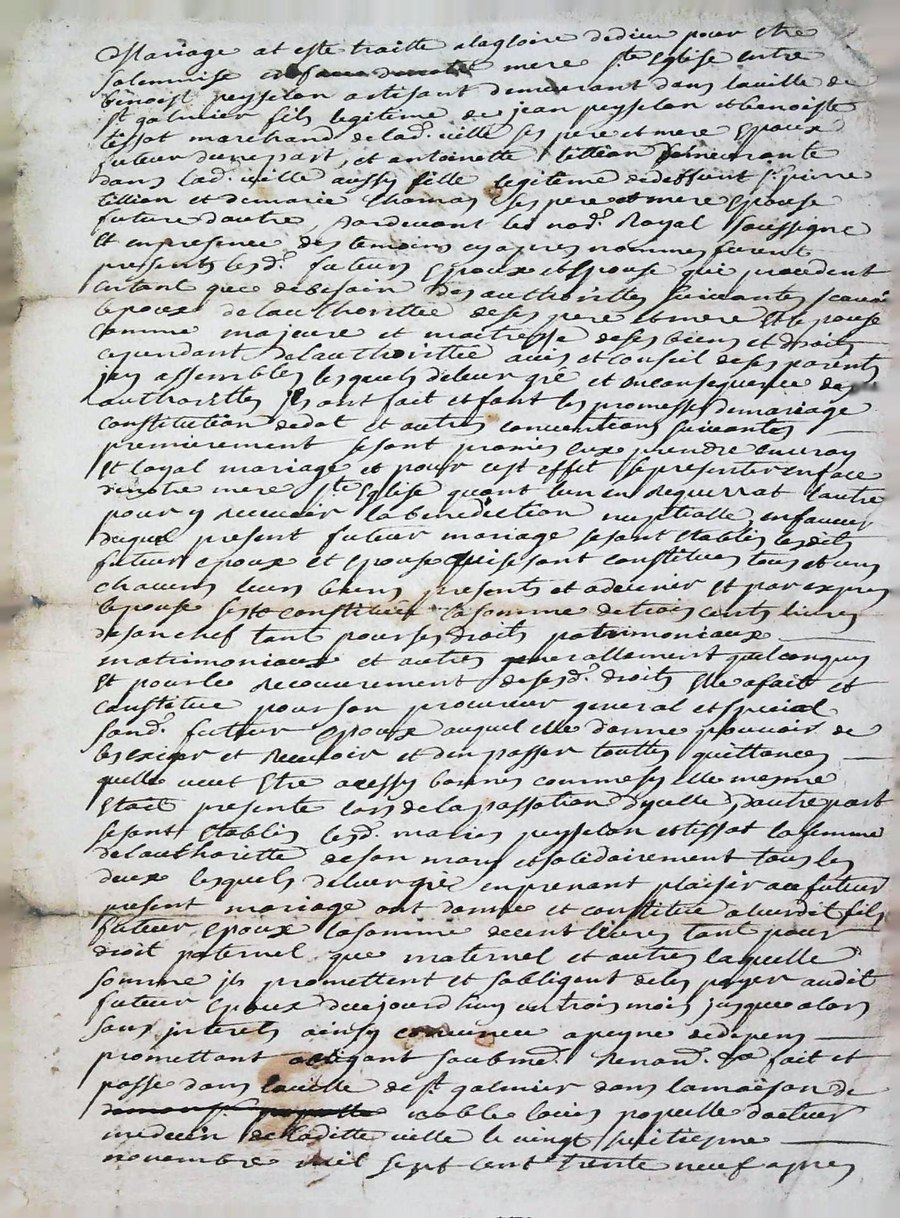 Mariage at este traitté a la gloire de dieu pour etre
solemnise en face de notre mere ste Eglise entre
benoist peysselon artisant demeurant dans la ville de
st galmier fils legitime de jean peysselon et benoiste
tissot marchand de lad. ville ses pere et mere Epoux
futeur dune part, et antoinette tillion demeurante
dans lad. ville aussy fille legitime de deffunt sr. pierre
tillion et de marie thomas ses pere et mere Epouse
future dautre, pardevant les nore Royal soussigne
Et en presence des temoins cy apres nommes furent
presents lesd. futeurs Epoux et Epouse qui procedent
autant que de besoin des authorittes suivantes scavoir
lepoux de lauthorittee de ses pere et mere Et lepouse
comme majeure et maitresse de ses biens et droits
cependant de lauthorittée avis et conseil de ses parents
jcy assemblés lesquels de leur gré et en consequence des
authorittes jls ont fait et font les promesses de mariage
constitution de dot et autres conventions suivantes
premierement se sont promis eux prendre en vray
Et loyal mariage et pour cest effet se presenter en face
de notre mere ste Eglise quant lun en Requerrat lautre
pour y recevoir la benediction nuptialle, en faveur
duquel present futeur mariage se sont Etablis lesdits
futeurs epoux et Epouse qui se sont constitues tous et uns
chacuns leurs biens presents et advenir Et par expres
lepouse sest constituée la somme de trois cents livres
de son chef tant pour ses droits patrimoniaux
matrimoniaux et autres generallement quelconques
Et pour le recouvrement de sesd. droits Elle a fait et
constitué pour son procureur general et special
sond. futeur Epoux auquel elle donne pouvoir de
les exiger et recevoir et den passer touttes quittances
quelle veut Etre aussy bonnes comme sy elle mesme
Etait presente lors de la passation dycelle dautre part
se sont Etablis lesd. maries peysselon et tissot la femme
de lauthoritte de son mary et solidairement tous les
deux lesquels de leur gré en prenant plaisir au futeur
present mariage ont donne et constitué a leurdit fils
futeur Epoux la somme de cent livres tant pour
droit paternel que maternel et autres laquelle
somme jls promettent et sobligent de les payer audit
futeur Epoux du ce jourdhuy en trois mois jusque alors
sans jnterets ainsy convenu a peyne de depens
promettant obligant soubmet. Renand. &a fait et
passe dans la ville de st galmier dans la maison de
noble louis poquelle docteur
medecin de laditte ville le vingt huitiesme
novembre mil sept cent trente neuf apres